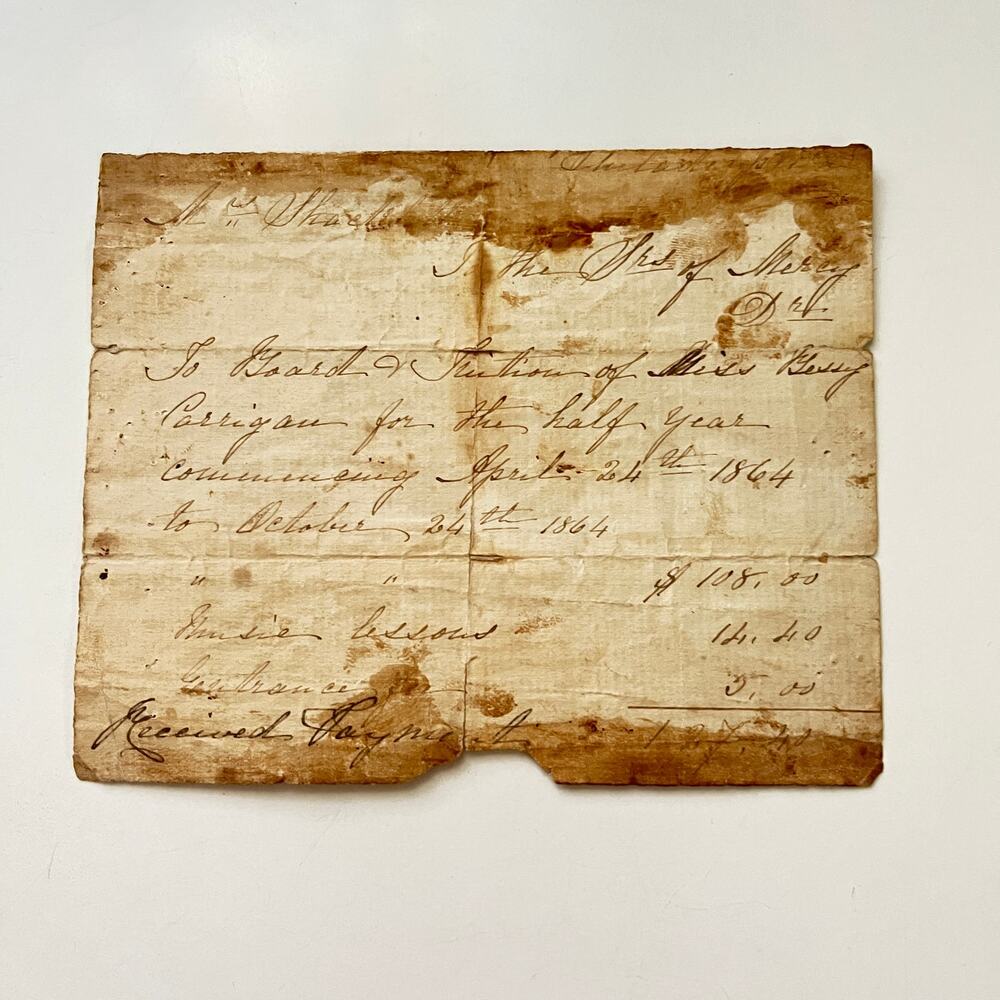 Mrs
To the Srs of Mercy
Dr.
To Board & Tuition of Miss Bessy
Corrigan for the half year
commencing April 24th 1864
to October 24th 1864
" " $108.00
Music lessons 14.40
Entrance 5.00
Received Payment 127.40